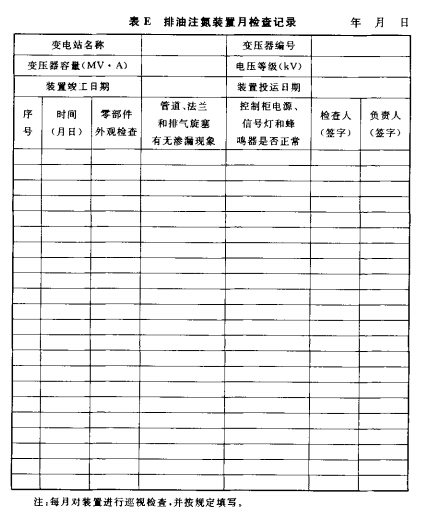 表 E 排油注氮装置月检查记录 年 月 日
变电站名称 变压器编号
变压器容量(MV·A) 电压等级(kV)
装置竣工日期 装置投运日期
序号 时间(月日) 零部件外观检查 管道、法兰和排气旋塞有无渗漏现象 控制柜电源、信号灯和蜂鸣器是否正常 检查人(签字) 负责人(签字)
注:每月对装置进行巡视检查,并按规定填写。